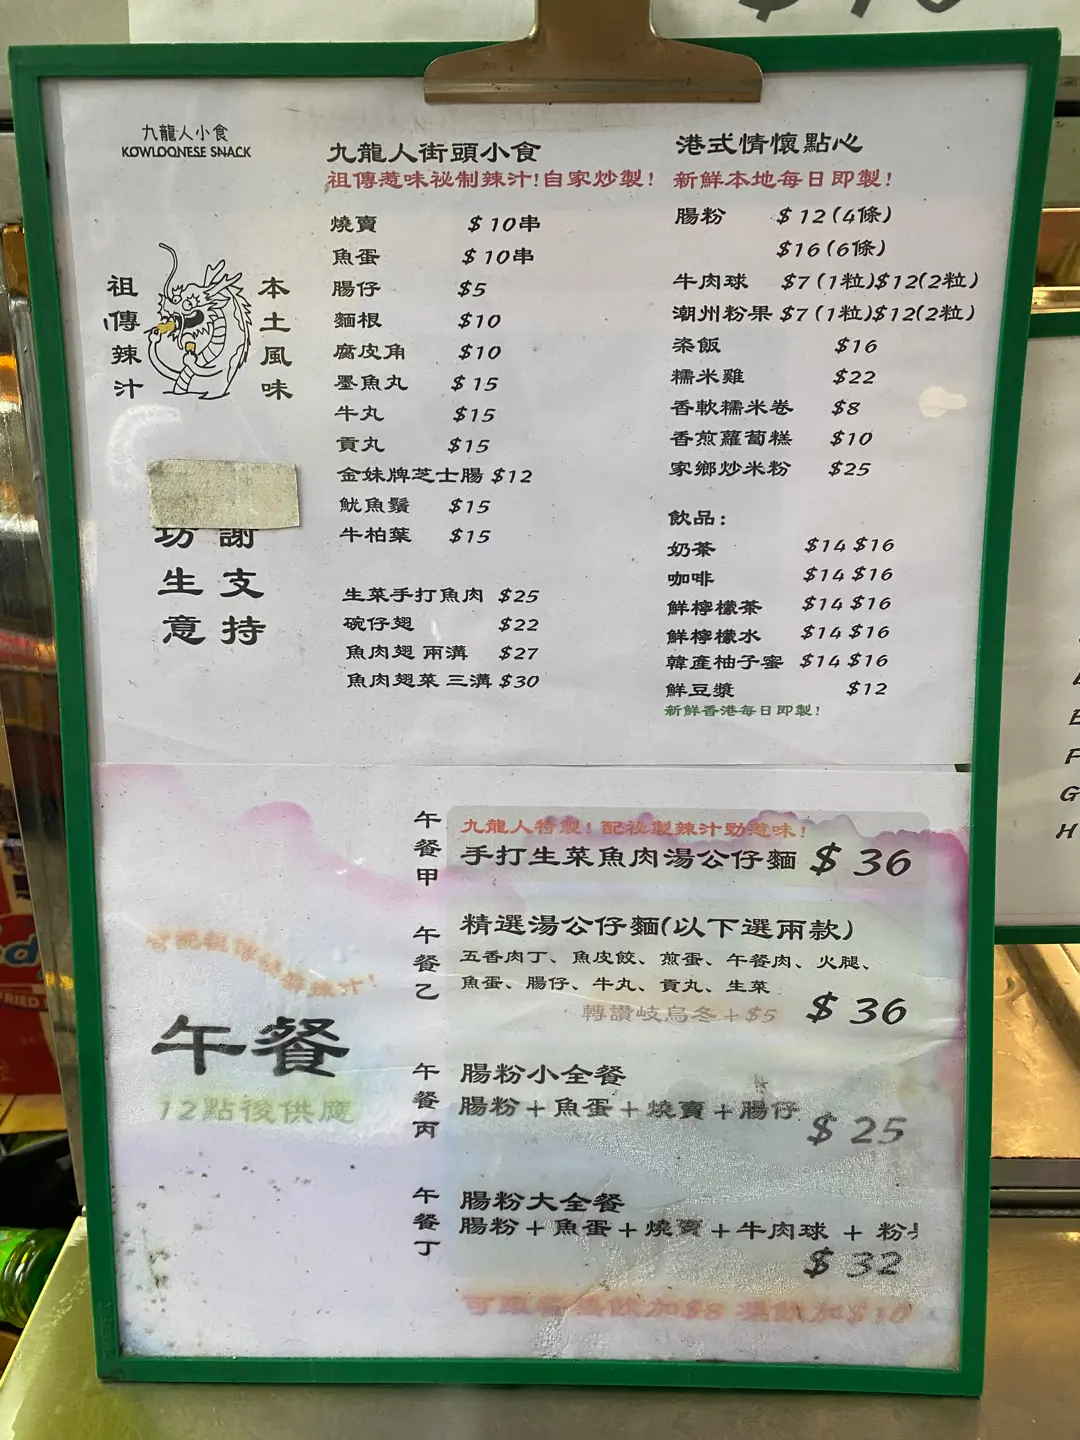 九龍人小食
KOWLOONESE SNACK
祖傳辣汁
本土風味
功 謝
生 支
意 持
九龍人街頭小食
祖傳惹味祕制辣汁!自家炒製!
燒賣 $10串
魚蛋 $10串
腸仔 $5
麵根 $10
腐皮角 $10
墨魚丸 $15
牛丸 $15
貢丸 $15
金妹牌芝士腸 $12
魷魚鬚 $15
牛柏葉 $15
生菜手打魚肉 $25
碗仔翅 $22
魚肉翅 兩溝 $27
魚肉翅菜 三溝 $30
港式情懷點心
新鮮本地每日即製!
腸粉 $12(4條)
$16(6條)
牛肉球 $7(1粒)$12(2粒)
潮州粉果 $7(1粒)$12(2粒)
粢飯 $16
糯米雞 $22
香軟糯米卷 $8
香煎蘿蔔糕 $10
家鄉炒米粉 $25
飲品:
奶茶 $14 $16
咖啡 $14 $16
鮮檸檬茶 $14 $16
鮮檸檬水 $14 $16
韓產柚子蜜 $14 $16
鮮豆漿 $12
新鮮香港每日即製!
可配祖傳祕製辣汁!
午餐
12點後供應
午餐甲
九龍人特製!配祕製辣汁勁惹味!
手打生菜魚肉湯公仔麵 $36
午餐乙
精選湯公仔麵(以下選兩款)
五香肉丁、魚皮餃、煎蛋、午餐肉、火腿、
魚蛋、腸仔、牛丸、貢丸、生菜
轉讚岐烏冬+$5 $36
午餐丙
腸粉小全餐
腸粉+魚蛋+燒賣+腸仔
$25
午餐丁
腸粉大全餐
腸粉+魚蛋+燒賣+牛肉球 + 粉
$32
飲加$8 凍飲加$10
E
F
G
H